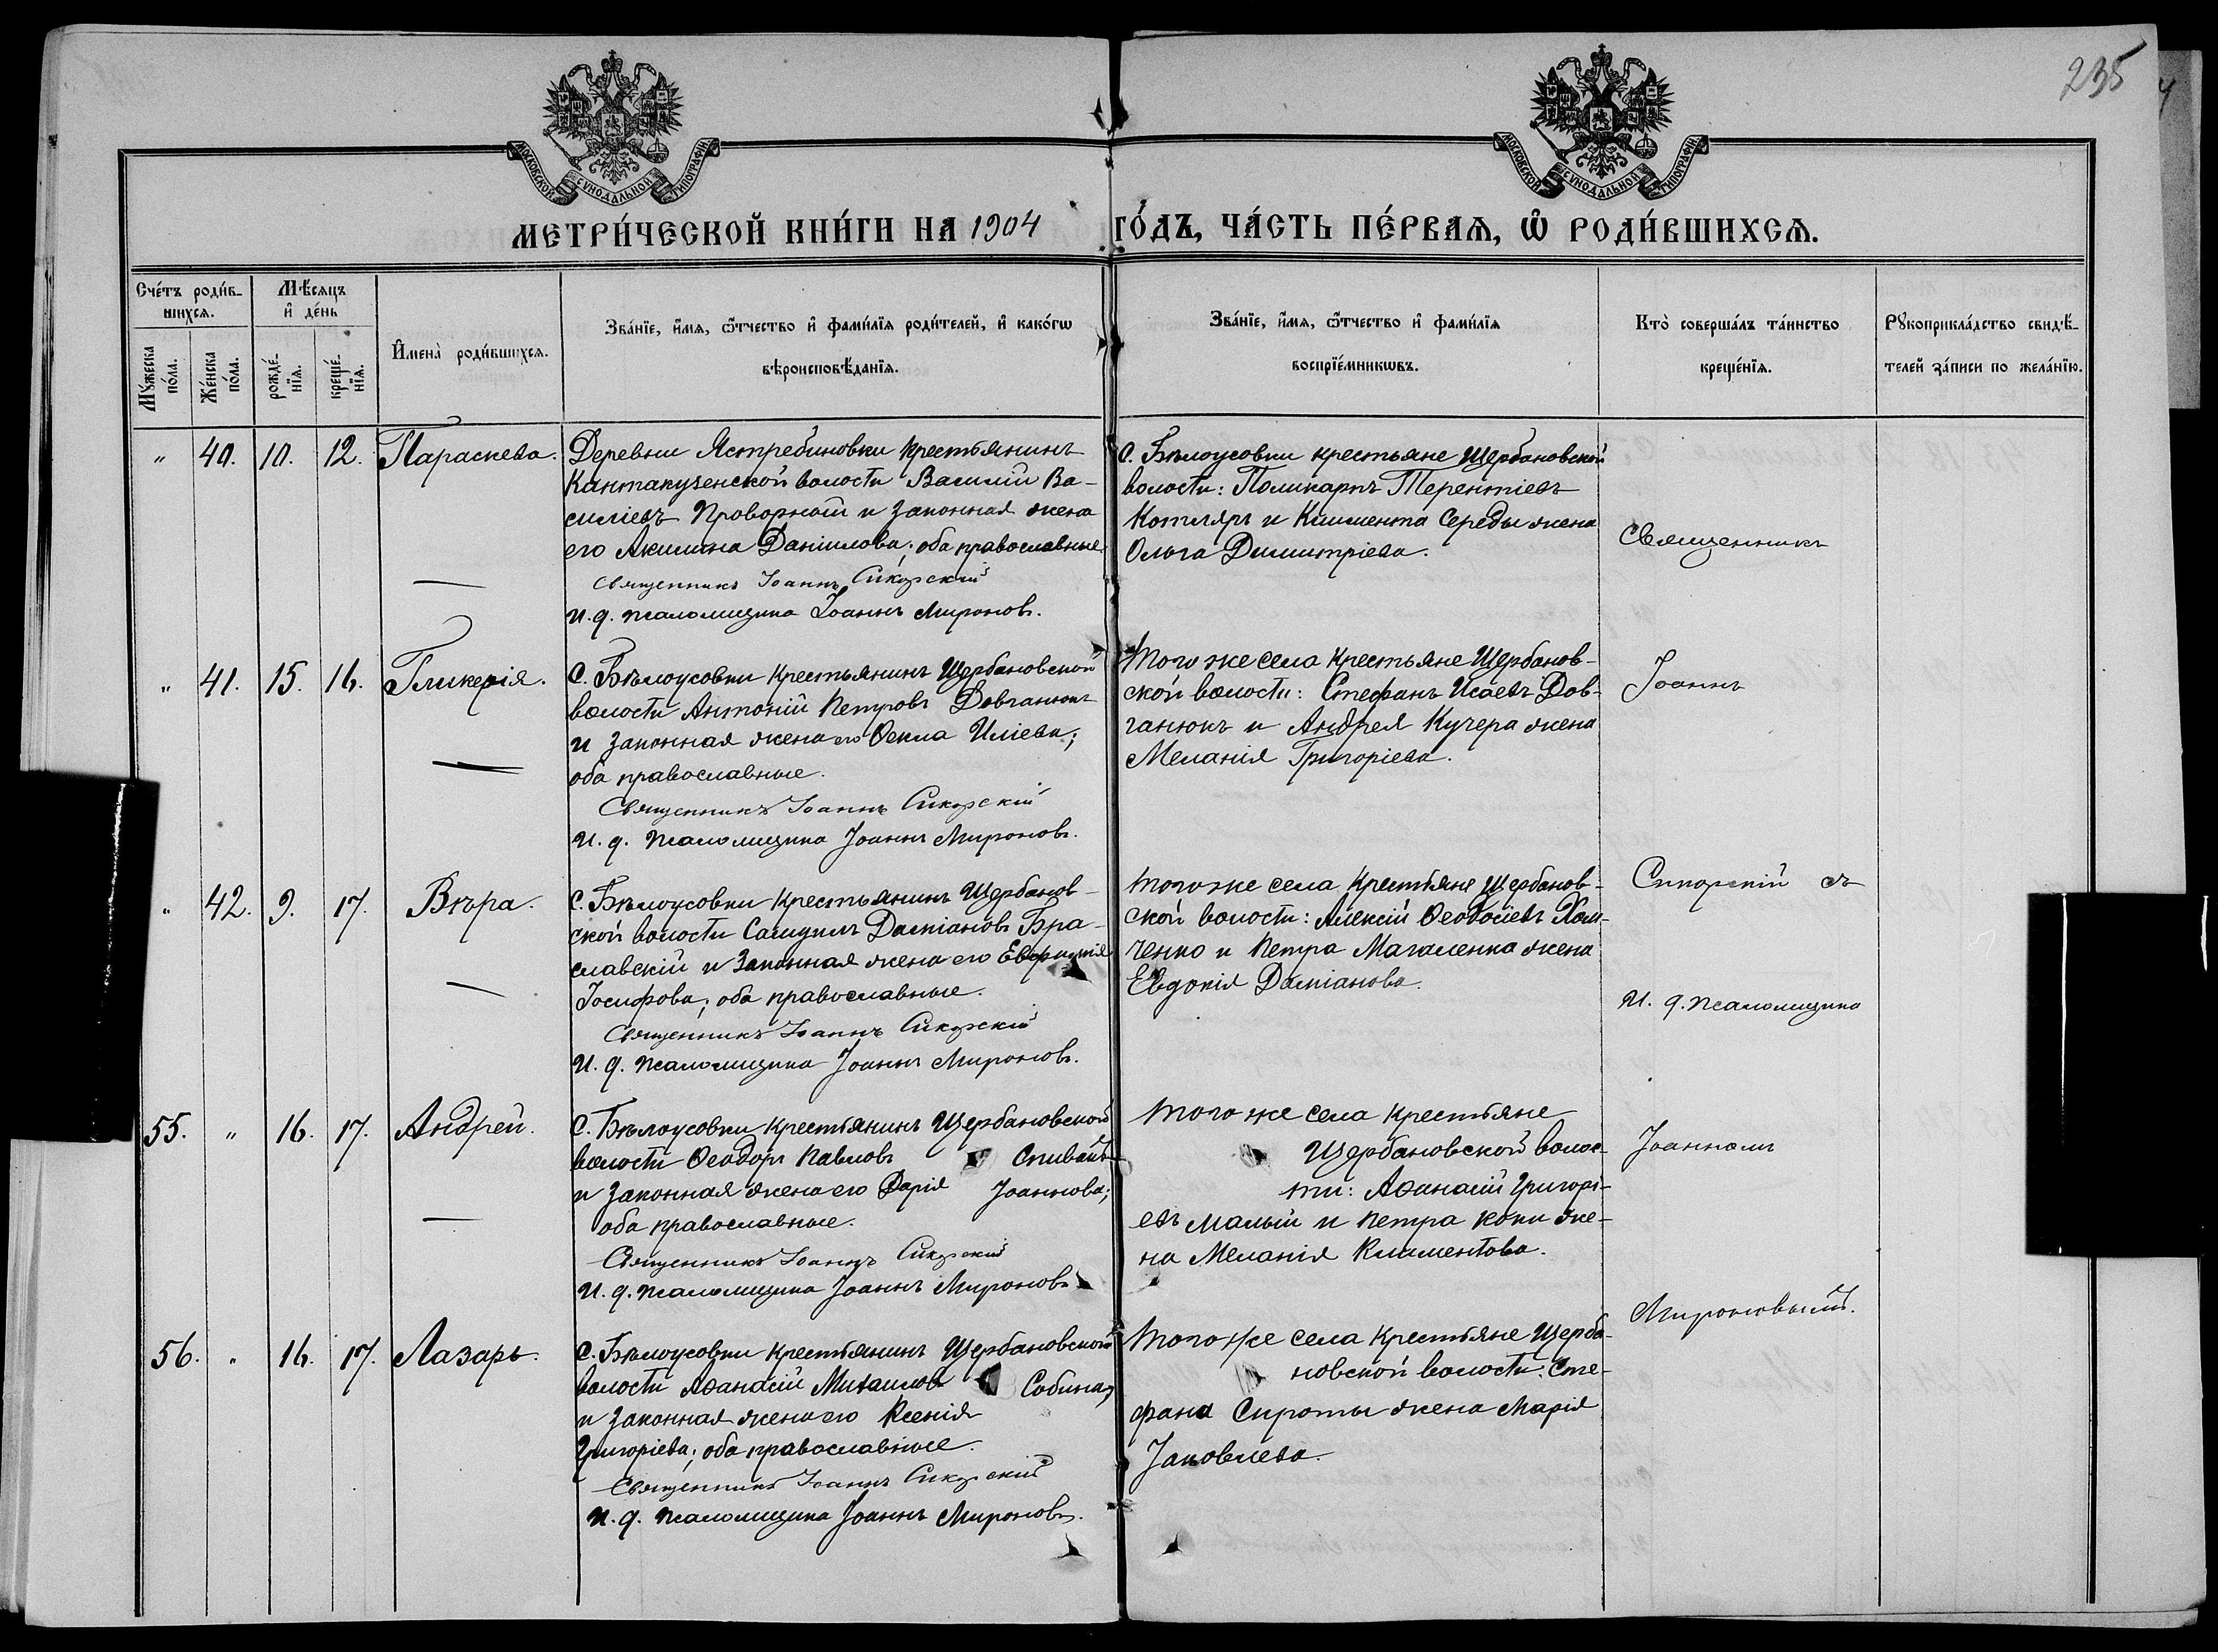 235
МОСКОВСКОЙ СѴНОДАЛЬНОЙ ТИПОГРАФІИ
МОСКОВСКОЙ СѴНОДАЛЬНОЙ ТИПОГРАФІИ
МЕТРИ́ЧЕСКОЙ КНИ́ГИ НА 1904 ГО́ДЪ, ЧА́СТЬ ПЕ́РВАѦ, Ѡ РОДИ́ВШИХСѦ.
Сче́тъ роди́в-
шихсѧ.
Мꙋ́жеска
по́ла.
Же́нска
по́ла.
Мѣ́сѧцъ
и҆ де́нь
рожде́-
нїѧ.
креще́-
нїѧ.
И҆мена̀ роди́вшихсѧ.
Зва́нїе, и҆́мѧ, ѻ҆́тчество и҆ фами́лїѧ роди́телей, и҆ како́гѡ
вѣроисповѣ́данїѧ.
Зва́нїе, и҆́мѧ, ѻ҆́тчество и҆ фами́лїѧ
воспрїе́мникѡвъ.
Кто̀ соверша́лъ та́инство
креще́нїѧ.
Рꙋкоприкла́дство свидѣ́-
телей за́писи по жела́нїю.
" 40. 10. 12. Параскева.
Деревни Ястребиновки крестьянинъ
Кантакузенской волости Василій Ва-
силіевъ Проворный и законная жена
его Акилина Даніилова; оба православные.
Священникъ Іоаннъ Сикорскій
И. д. псаломщика Іоаннъ Мироновъ.
С. Бѣлоусовки крестьяне Щербановской
волости: Поликарпъ Терентіевъ
Котляръ и Климента Середы жена
Ольга Димитріева.
Священникъ
" 41. 15. 16. Гликерія.
С. Бѣлоусовки крестьянинъ Щербановской
волости Антоній Петровъ Довганюкъ
и законная жена его Ѳекла Иліева;
оба православные.
Священникъ Іоаннъ Сикорскій
И. д. псаломщика Іоаннъ Мироновъ.
Того же села крестьяне Щербанов-
ской волости: Стефанъ Исаевъ Дов-
ганюкъ и Андрея Кучера жена
Меланія Григоріева.
Іоаннъ
" 42. 9. 17. Вѣра.
С. Бѣлоусовки крестьянинъ Щербанов-
ской волости Самуилъ Даміановъ Бра-
славскій и законная жена его
Іосифова; оба православные.
Священникъ Іоаннъ Сикорскій
И. д. псаломщика Іоаннъ Мироновъ.
Того же села крестьяне Щербанов-
ской волости: Алексій Ѳеодосіевъ Хом-
ченко и Петра Магаленка жена
Евдокія Даміанова.
Сикорскій съ
И. д. псаломщика
55. " 16. 17. Андрей.
С. Бѣлоусовки крестьянинъ Щербановской
волости Ѳеодоръ Павловъ Спивакъ
и законная жена его Дарія Іоаннова;
оба православные.
Священникъ Іоаннъ Сикорскій
И. д. псаломщика Іоаннъ Мироновъ
Того же села крестьяне
Щербановской волос-
ти: Аѳанасій Григорі-
евъ Малый и Петра Копи же-
на Меланія Климентова.
Іоанномъ
56. " 16. 17. Лазарь.
С. Бѣлоусовки крестьянинъ Щербановской
волости Аѳанасій Михаиловъ Собина,
и законная жена его Ксенія
Григоріева; оба православные.
Священникъ Іоаннъ Сикорскій
И. д. псаломщика Іоаннъ Мироновъ.
Того же села крестьяне Щерба-
новской волости: Сте-
фана Сироты жена Марія
Іаковлева.
Мироновымъ.